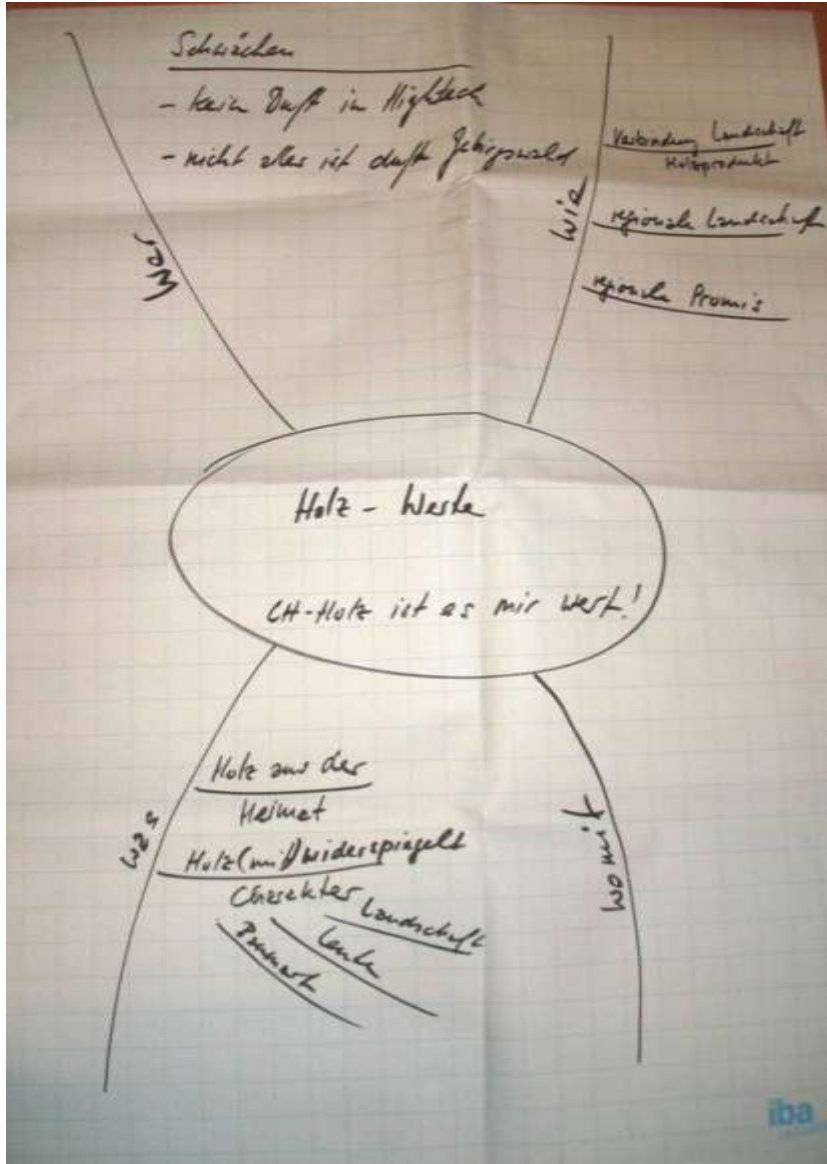 Schwächen
- kein Duft in Highteck
- nicht alles ist duft Gebirgswald
Wer
wie
Verbindung Landschaft
Holzprodukt
regionale Landschaft
regionale Promis
Holz - Werte
CH-Holz ist es mir wert!
was
Holz aus der
Heimat
Holz(mit)widerspiegelt
Charakter
Landschaft
Leute
womit
iba